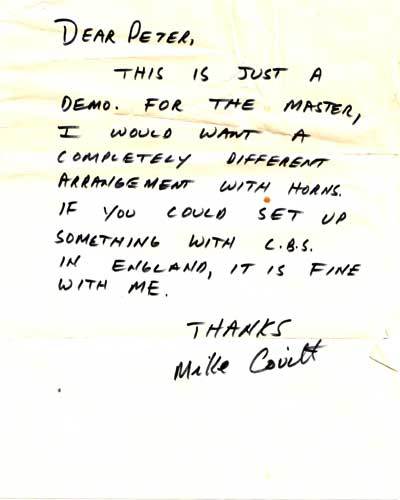 DEAR PETER,
THIS IS JUST A
DEMO. FOR THE MASTER,
I WOULD WANT A
COMPLETELY DIFFERENT
ARRANGEMENT WITH HORNS.
IF YOU COULD SET UP
SOMETHING WITH C.B.S.
IN ENGLAND, IT IS FINE
WITH ME.
THANKS
Mike